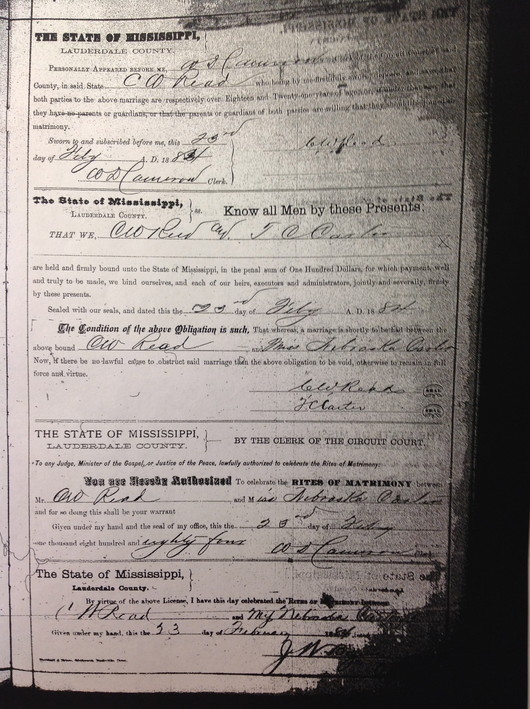 THE STATE OF MISSISSIPPI,
LAUDERDALE COUNTY.
PERSONALLY APPEARED BEFORE ME, W D Cameron
County, in said State C W Read who being by me
both parties to the above marriage are respectively over Eighteen and Twenty-one years
they have no parents or guardians, or that the parents or guardians of both parties are willing that
matrimony.
Sworn to and subscribed before me, this 23rd
day of Feby A. D. 1884
C W Read
W D Cameron Clerk.
The State of Mississippi, ss. Know all Men by these Presents:
LAUDERDALE COUNTY.
THAT WE, C W Read and T C Carter
are held and firmly bound unto the State of Mississippi, in the penal sum of One Hundred Dollars, for which payment, well
and truly to be made, we bind ourselves, and each of our heirs, executors and administrators, jointly and severally, firmly
by these presents.
Sealed with our seals, and dated this the 23rd day of Feby A. D. 1884
The Condition of the above Obligation is such, That whereas, a marriage is shortly to be had between the
above bound C W Read and Miss Nebraska Carter
Now, if there be no lawful cause to obstruct said marriage then the above obligation to be void, otherwise to remain in full
force and virtue.
C W Read
T C Carter
THE STATE OF MISSISSIPPI,
LAUDERDALE COUNTY. BY THE CLERK OF THE CIRCUIT COURT.
To any Judge, Minister of the Gospel, or Justice of the Peace, lawfully authorized to celebrate the Rites of Matrimony:
You are Hereby Authorized To celebrate the RITES OF MATRIMONY between
Mr. C W Read and Miss Nebraska Carter
and for so doing this shall be your warrant
Given under my hand and the seal of my office, this the 23rd day of Feby
one thousand eight hundred and eighty four
W D Cameron Clerk
The State of Mississippi,
Lauderdale County.
By virtue of the above License, I have this day celebrated the RITES OF between
C W Read and Miss Nebraska
Given under my hand, this the 23 day of February
J. W.